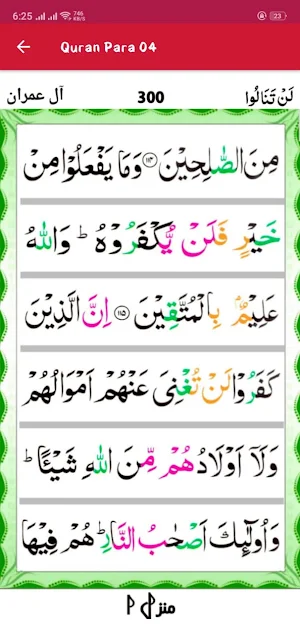 6:25 746 KB/S 23
Quran Para 04
آل عمران 300 لَنْ تَنَالُوا
مِنَ الصّٰلِحِيْنَ ۝۱۱۴ وَمَا يَفْعَلُوْا مِنْ
خَيْرٍ فَلَنْ يُّكْفَرُوْهُ ؕ وَاللّٰهُ
عَلِيْمٌۢ بِالْمُتَّقِيْنَ ۝۱۱۵ اِنَّ الَّذِيْنَ
كَفَرُوْا لَنْ تُغْنِىَ عَنْهُمْ اَمْوَالُهُمْ
وَلَاۤ اَوْلَادُهُمْ مِّنَ اللّٰهِ شَيْـًٔا ؕ
وَاُولٰٓئِكَ اَصْحٰبُ النَّارِ ۚ هُمْ فِيْهَا
منزل ۱